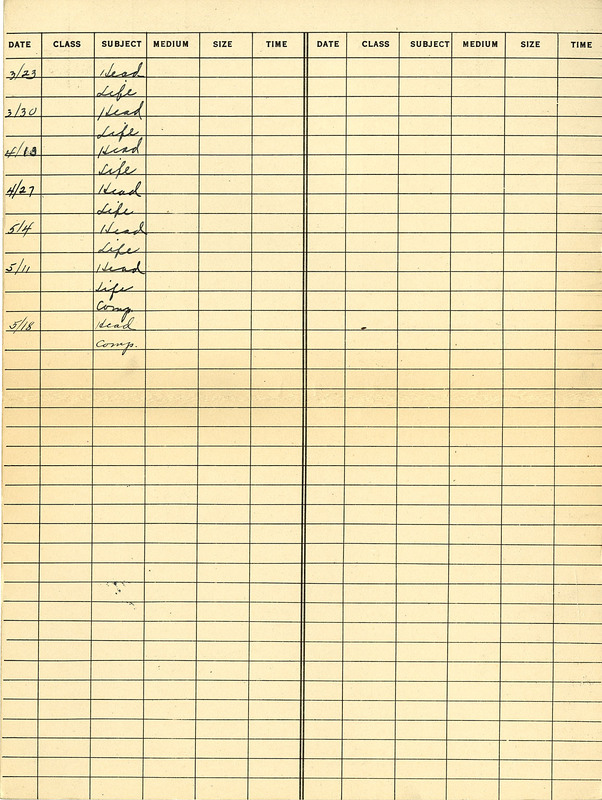 DATE CLASS SUBJECT MEDIUM SIZE TIME DATE CLASS SUBJECT MEDIUM SIZE TIME
3/23 Head
Life
3/30 Head
Life
4/13 Head
Life
4/27 Head
Life
5/4 Head
Life
5/11 Head
Life
Comp.
5/18 Head
Comp.